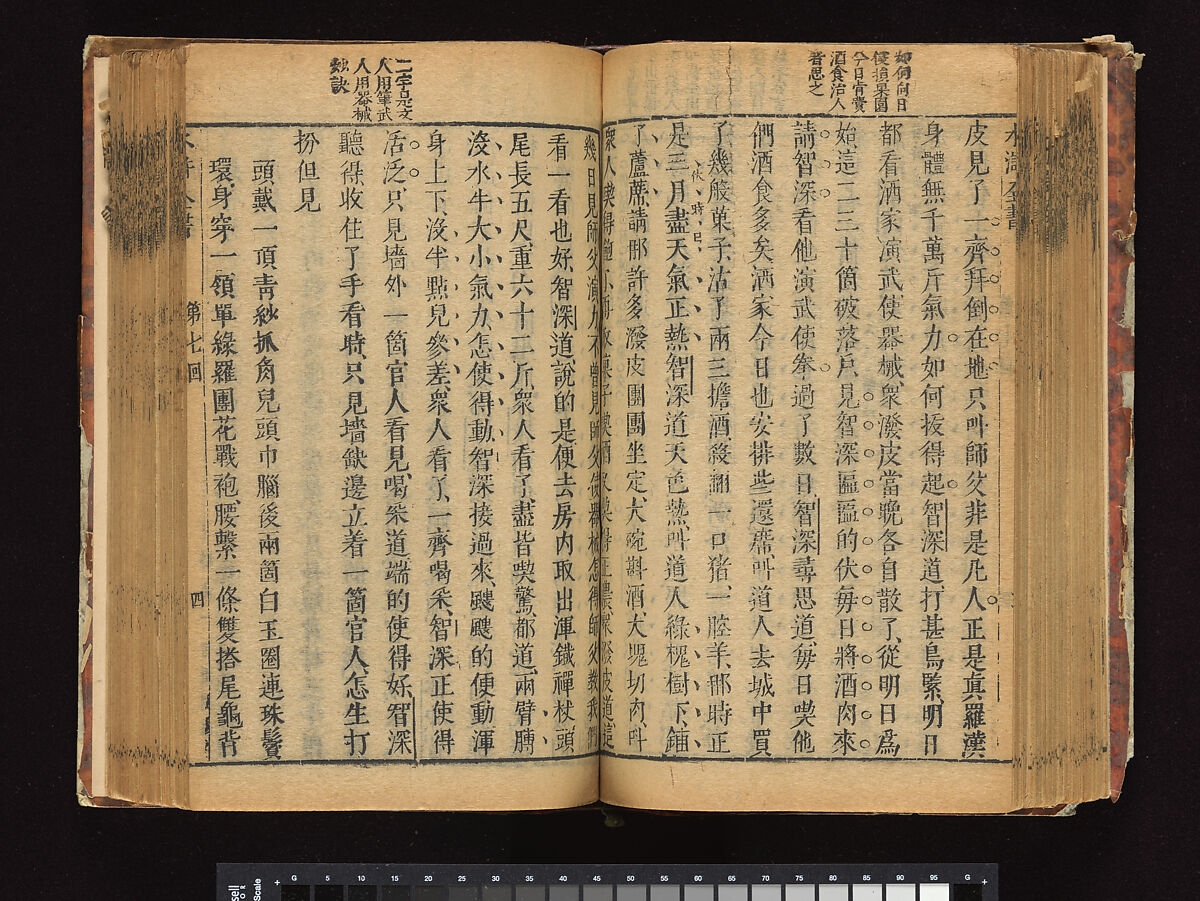 水滸全書
如何向日
侵損果園
今日肯費
酒食治人
者思之
皮見了一齊拜倒在地只呌師父非是凡人正是眞羅漢
身體無千萬斤氣力如何拔得起智深道打甚鳥緊明日
都看洒家演武使器械衆潑皮當晚各自散了從明日爲
始這二三十箇破落戶見智深匾匾的伏每日將酒肉來
請智深看他演武使拳過了數日智深尋思道每日喫他
們酒食多矣洒家今日也安排些還席呌道人去城中買
了幾般菓子沽了兩三擔酒殺翻一口猪一腔羊那時正
是三月盡天氣正熱智深道天色熱呌道人綠槐樹下鋪
了蘆蓆請那許多潑皮團團坐定大碗斟酒大塊切肉呌
衆人喫得飽了再取菓子喫酒又喫得正濃衆潑皮道這
二字是文
人用筆武
人用器械
訣
幾日見師父演力不曾見師父使器械怎得師父教我們
看一看也好智深道說的是便去房內取出渾鐵禪杖頭
尾長五尺重六十二斤衆人看了盡皆喫驚都道兩臂膊
沒水牛大小氣力怎使得動智深接過來颼颼的便動渾
身上下沒半點兒參差衆人看了一齊喝采智深正使得
活泛只見墻外一箇官人看見喝采道端的使得好智深
聽得收住了手看時只見墻缺邊立着一箇官人怎生打
扮但見
頭戴一頂青紗抓角兒頭巾腦後兩箇白玉圈連珠鬢
環身穿一領單綠羅團花戰袍腰繫一條雙搭尾龜背
第七回
四